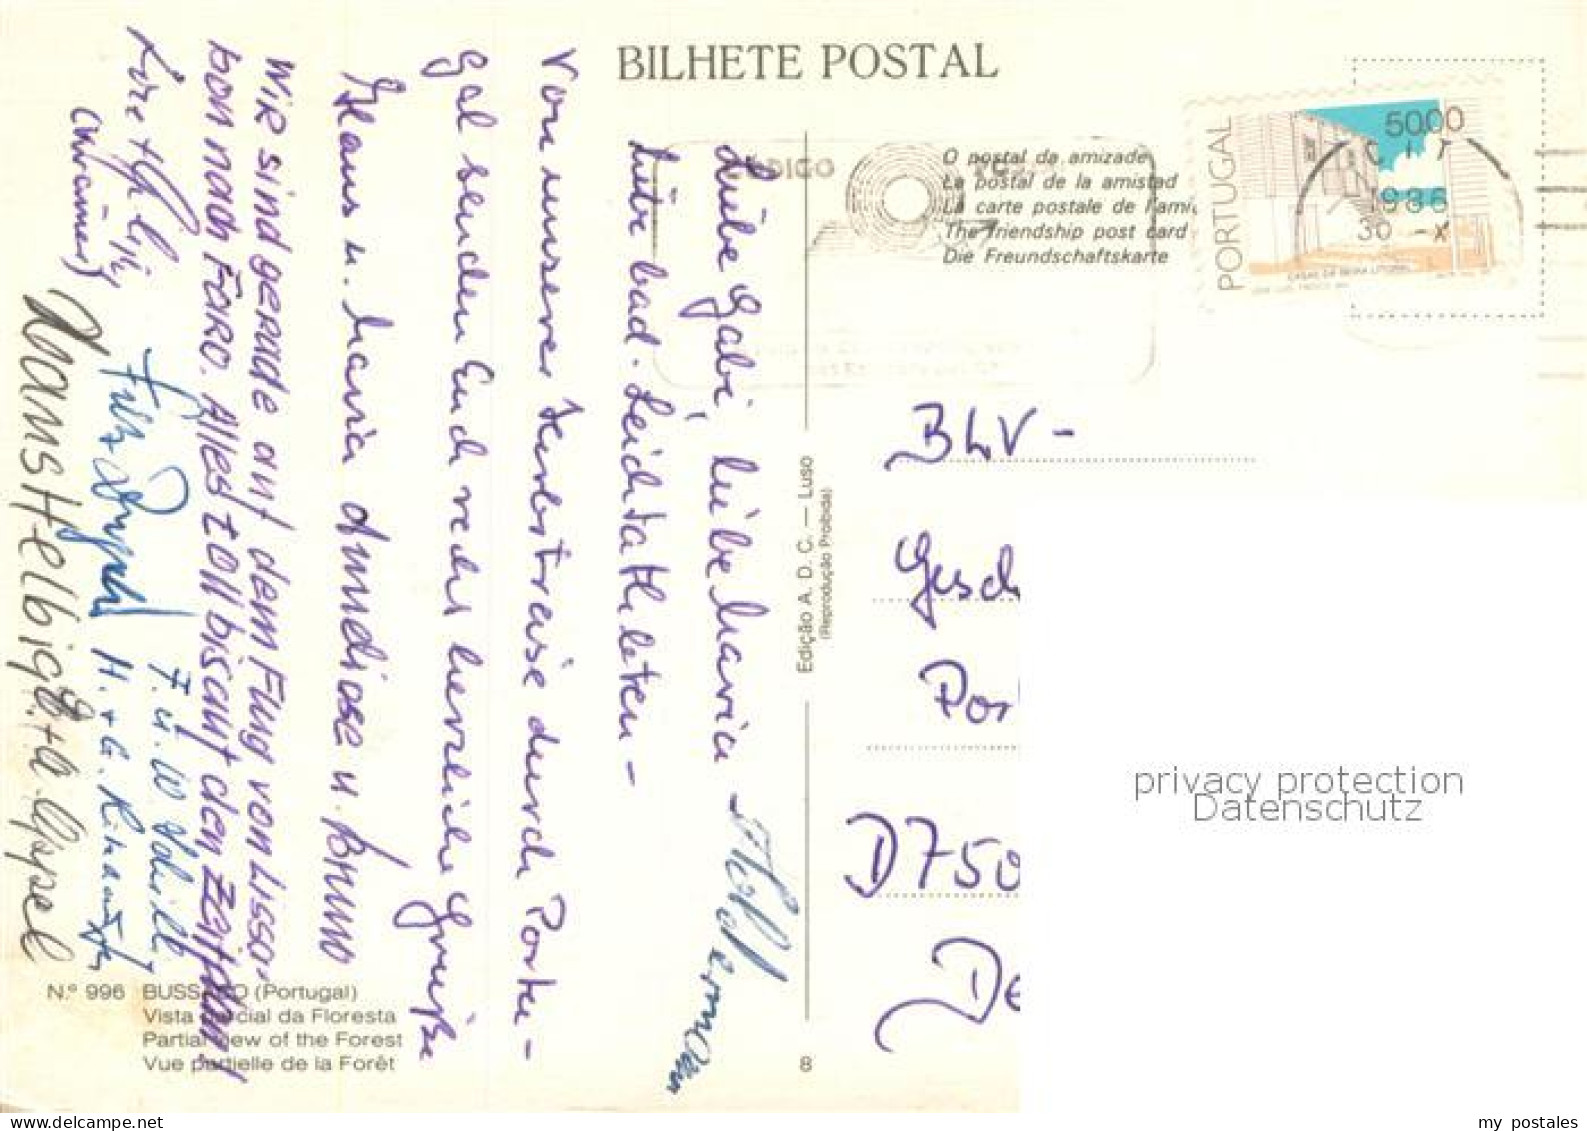 BILHETE POSTAL
O postal da amizade
La postal de la amistad
La carte postale de l'ami
The friendship post card
Die Freundschaftskarte
PORTUGAL
5000
1986
30 -X
CÓDIGO
CASAS DA BEIRA LITORAL
Liebe Gabi, liebe Maria
Liebe bad. Leichtathleten -
Von unserer Herbstreise durch Portu-
gal senden Euch recht herzliche Grüße
Klaus u. Maria u. Bruno
Wir sind gerade auf dem Flug von Lissa-
bon nach Faro. Alles toll bis auf den Zeitplan!
F. u. W.
H. + G.
Hans Helbig
BLV -
Gesch
Pos
D750
De
Edição A. D. C. — Luso
(Reprodução Proibida)
N.º 996 BUSSACO (Portugal)
Vista parcial da Floresta
Partial view of the Forest
Vue partielle de la Forêt
8
privacy protection
Datenschutz
my postales